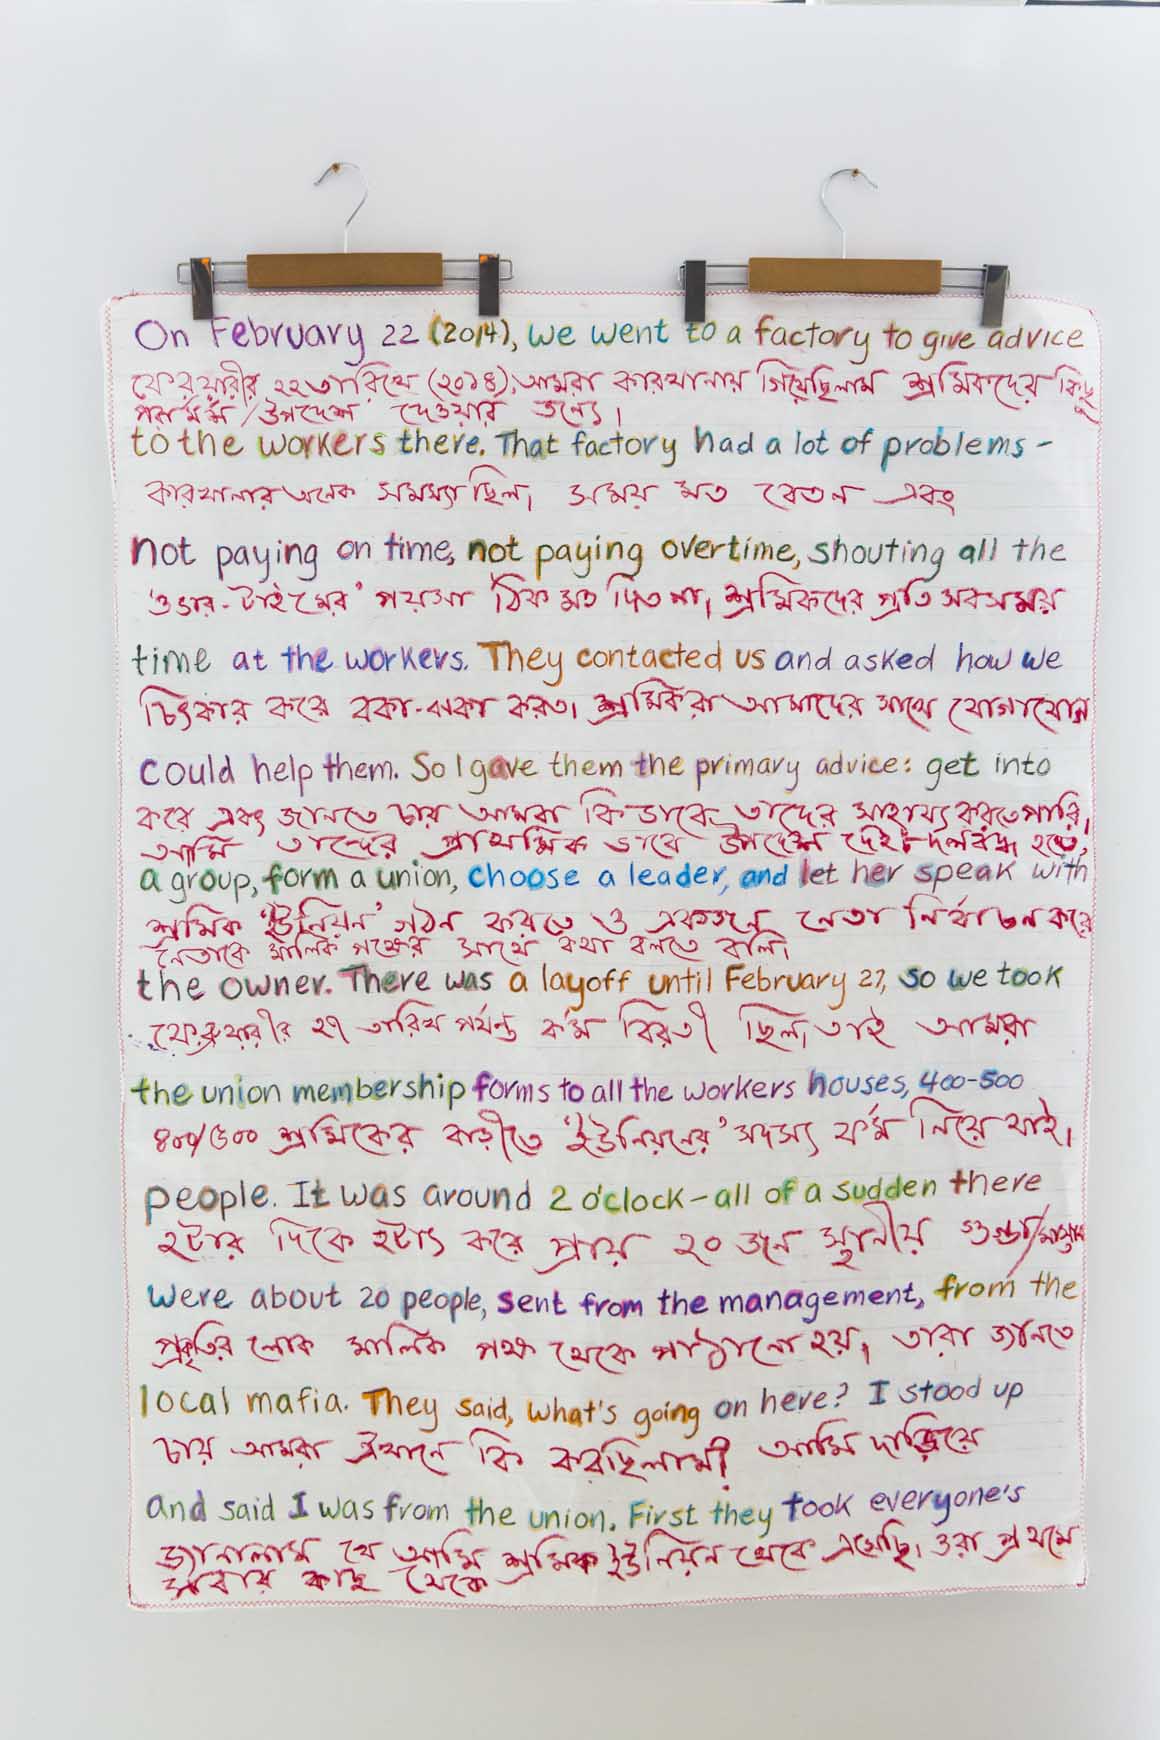 On February 22 (2014), we went to a factory to give advice
ফেব্রুয়ারীর ২২ তারিখে (২০১৪), আমরা কারখানায় গিয়েছিলাম শ্রমিকদের কিছু
পরামর্শ / উপদেশ দেওয়ার জন্যে।
to the workers there. That factory had a lot of problems -
কারখানার অনেক সমস্যা ছিল, সময় মত বেতন এবং
not paying on time, not paying overtime, shouting all the
'ওভার-টাইমের' পয়সা ঠিক মত দিত না, শ্রমিকদের প্রতি সবসময়
time at the workers. They contacted us and asked how we
চিৎকার করে বকা-ঝকা করত। শ্রমিকরা আমাদের সাথে যোগাযোগ
could help them. So I gave them the primary advice: get into
করে এবং জানতে চায় আমরা কিভাবে তাদের সাহায্য করতে পারি,
আমি তাদের প্রাথমিক ভাবে উপদেশ দেই - দলবদ্ধ হতে,
a group, form a union, choose a leader, and let her speak with
শ্রমিক 'ইউনিয়ন' গঠন করতে ও একজন নেতা নির্বাচন করে
নেতাকে মালিক পক্ষের সাথে কথা বলতে বলি,
the owner. There was a layoff until February 27, so we took
ফেব্রুয়ারীর ২৭ তারিখ পর্যন্ত কর্ম বিরতী ছিল, তাই আমরা
the union membership forms to all the workers houses, 400-500
৪০০/৫০০ শ্রমিকের বাড়ীতে 'ইউনিয়নের' সদস্য ফর্ম নিয়ে যাই,
people. It was around 2 o'clock - all of a sudden there
২টার দিকে হটাৎ করে প্রায় ২০ জন স্থানীয় গুন্ডা/মাস্তান
were about 20 people, sent from the management, from the
প্রকৃতির লোক মালিক পক্ষ থেকে পাঠানো হয়, তারা জানতে
local mafia. They said, what's going on here? I stood up
চায় আমরা এখানে কি করছিলাম? আমি দাড়িয়ে
and said I was from the union. First they took everyone's
জানালাম যে আমি শ্রমিক ইউনিয়ন থেকে এসেছি, ওরা প্রথমে
সবার কাছ থেকে